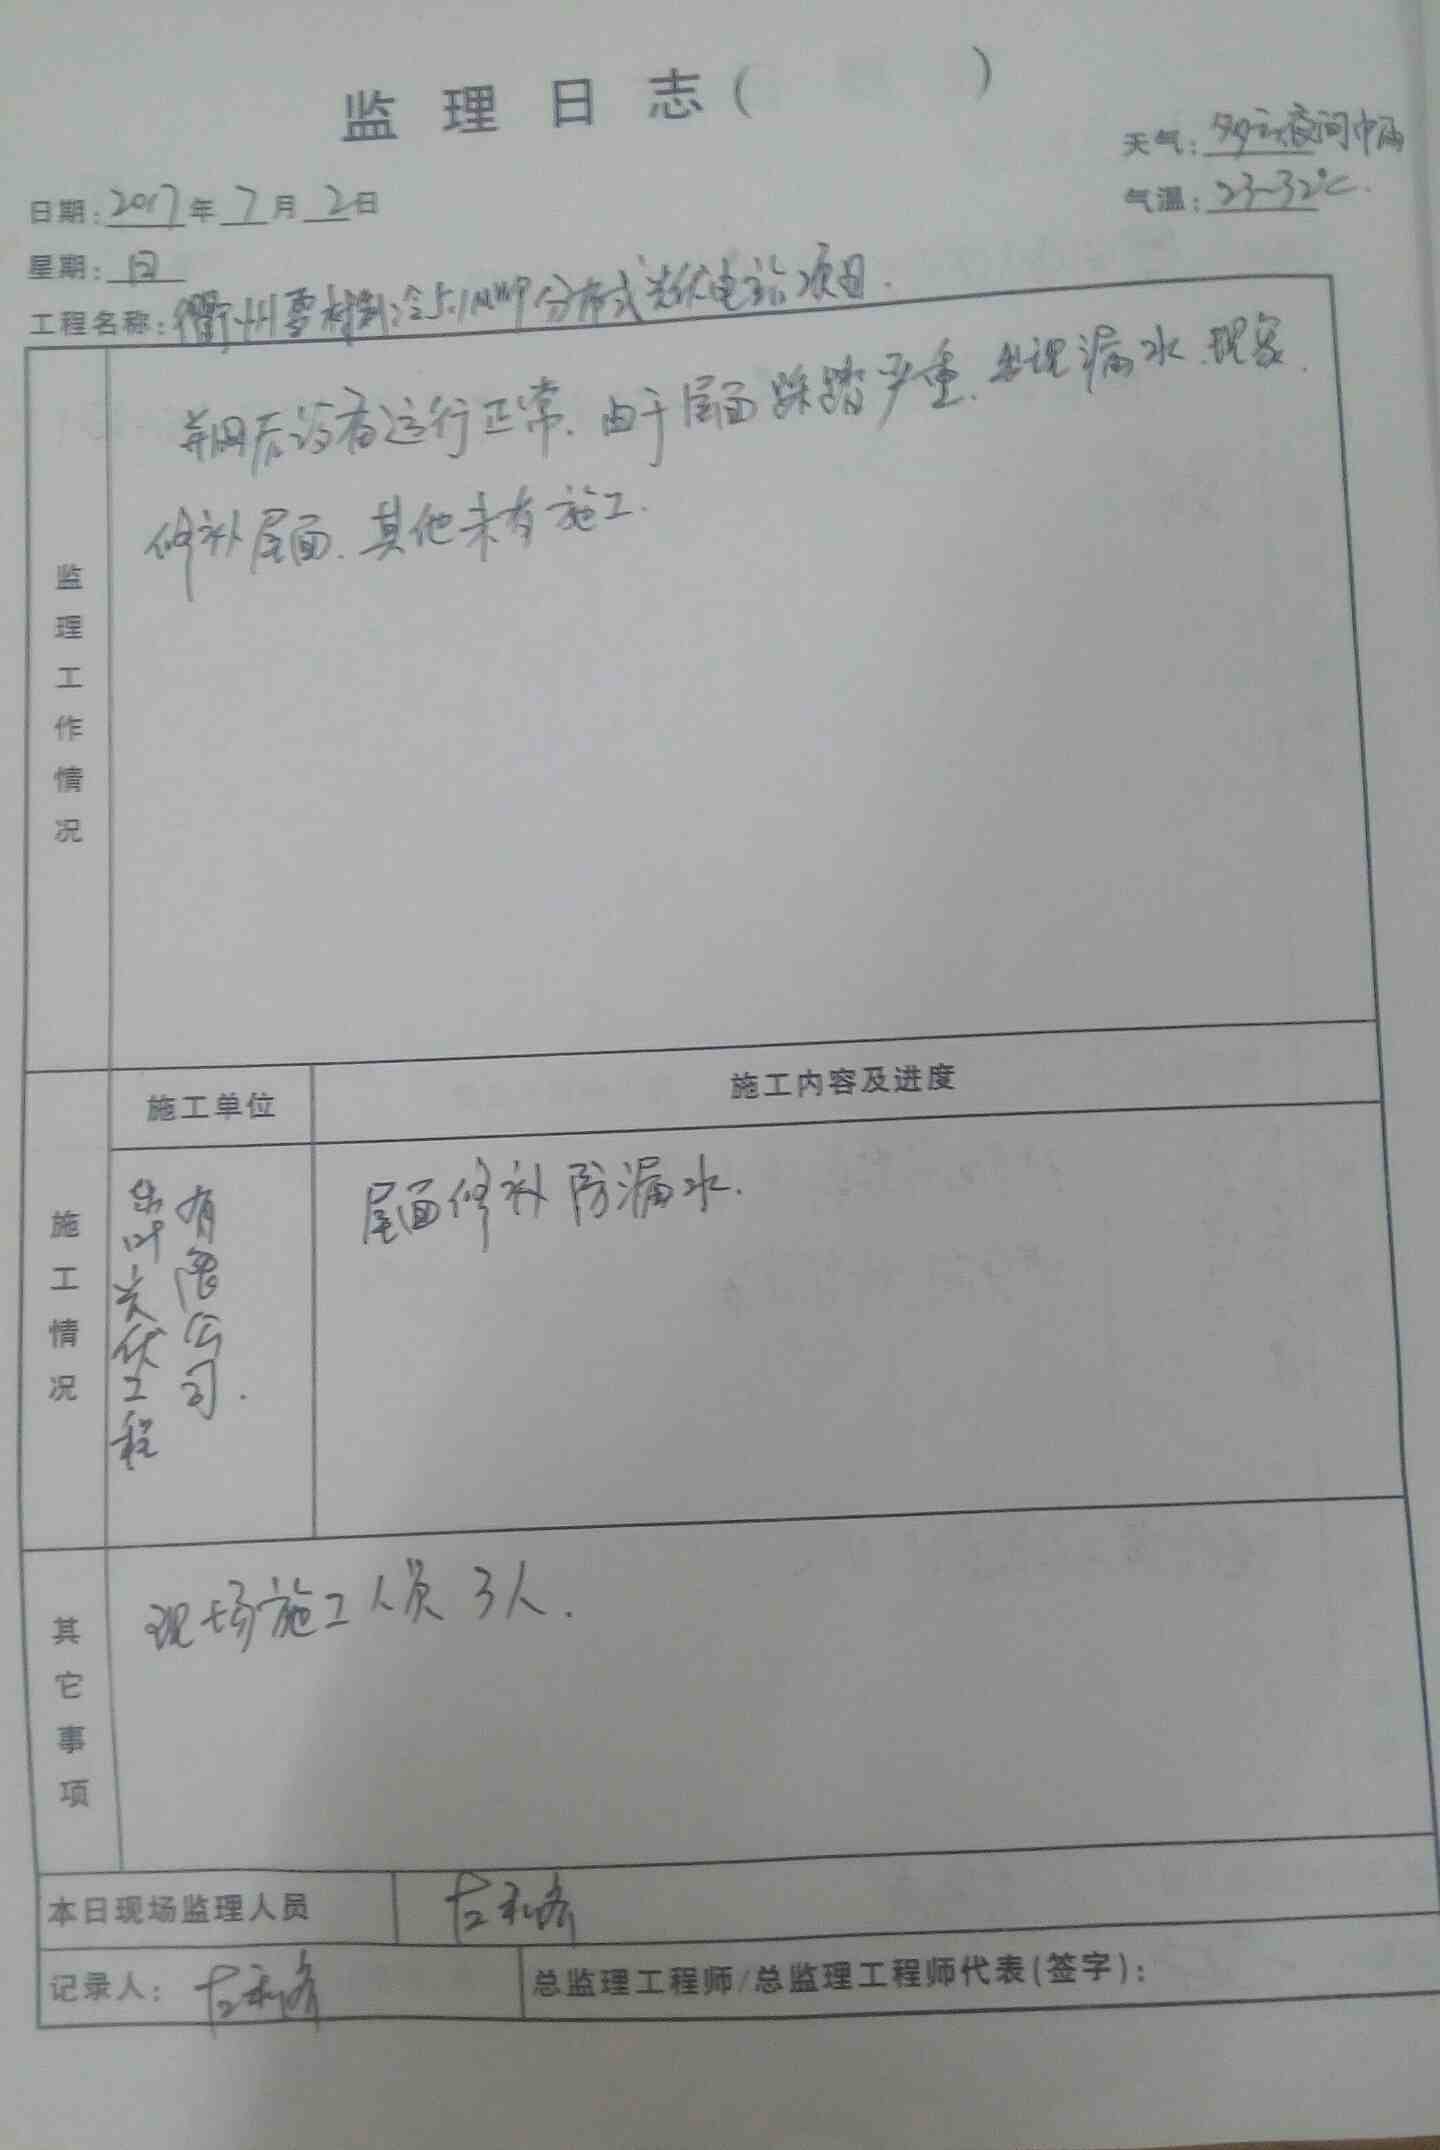 监理日志( )
天气: 多云夜间中雨
日期: 2017年7月2日
气温: 23~32℃.
星期: 日
工程名称: 衢州雪村制冷5.1MWP分布式光伏电站项目.
监理工作情况
并网后设备运行正常. 由于屋面踩踏严重. 出现漏水现象.
修补屋面. 其他未有施工.
施工情况
施工单位
施工内容及进度
乐叶光伏工程
有限公司.
屋面修补防漏水.
其它事项
现场施工人员3人.
本日现场监理人员
记录人:
总监理工程师/总监理工程师代表(签字):